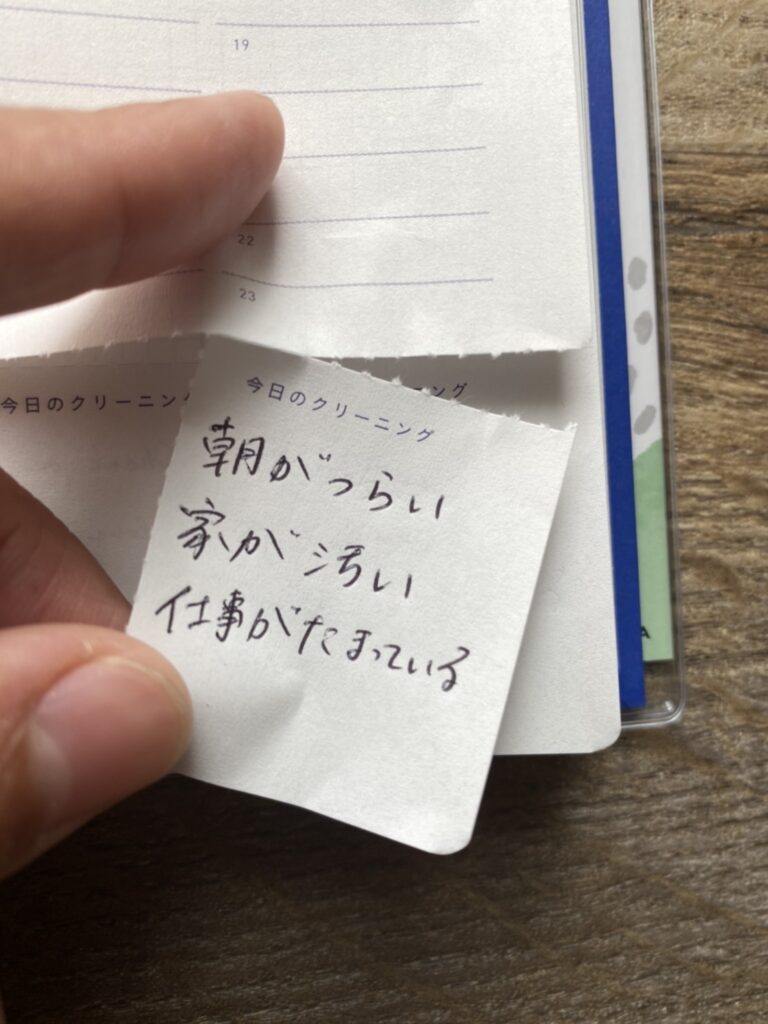 19
22
23
今日のクリーニング
ーニング
今日のクリーニング
朝がつらい
家が汚い
仕事がたまっている
A